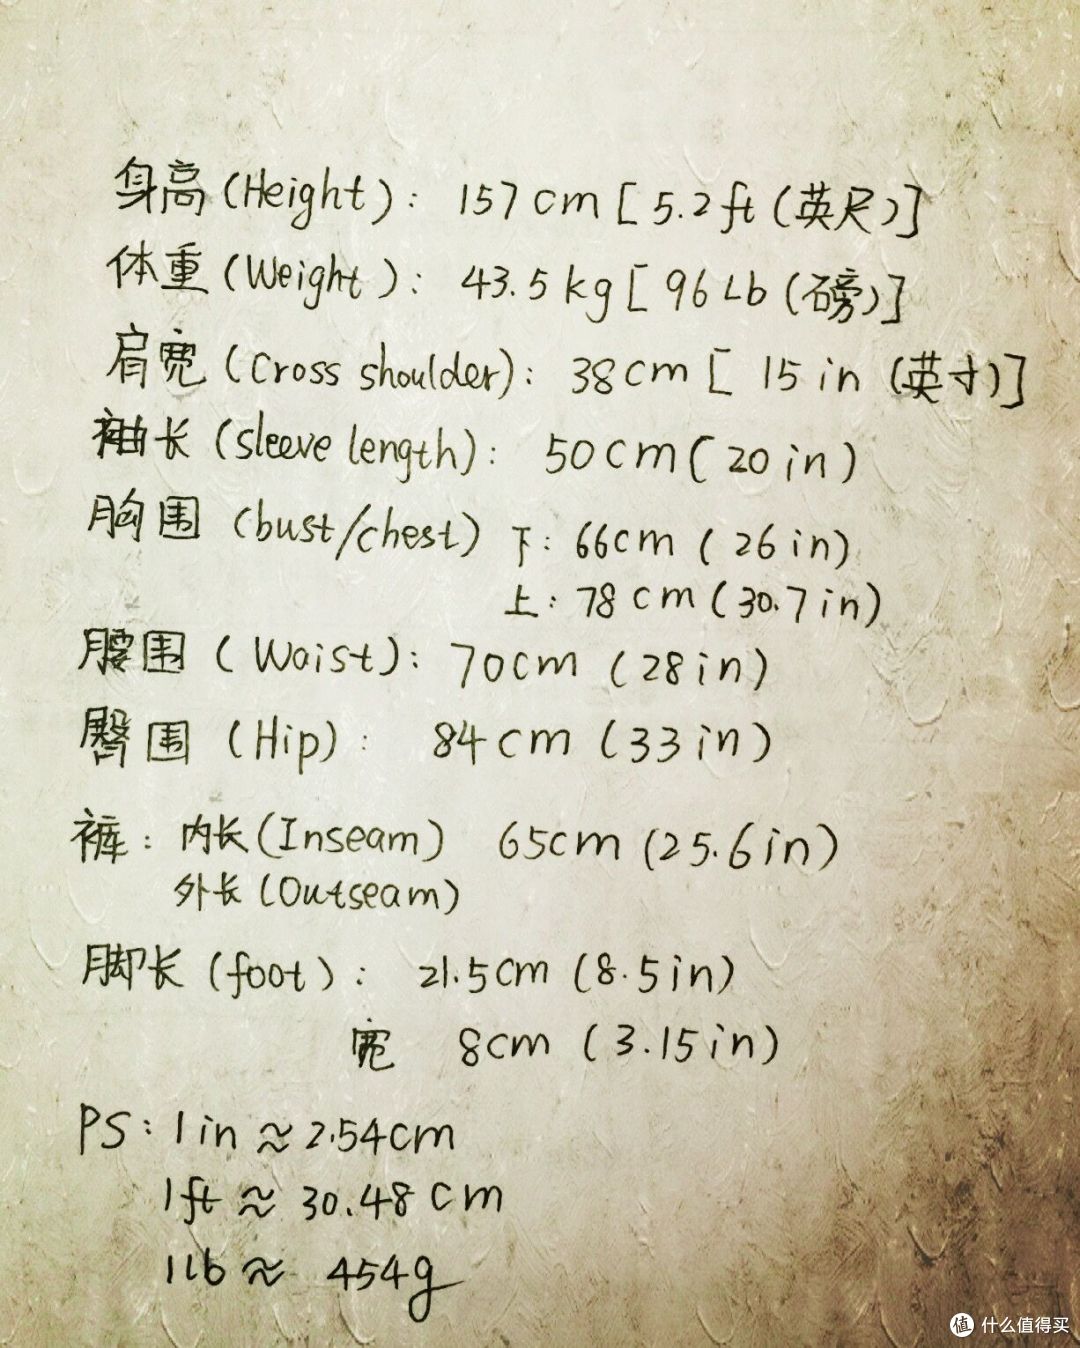 身高(Height): 157cm [5.2ft(英尺)]
体重(Weight): 43.5kg[96Lb(磅)]
肩宽(Cross shoulder): 38cm [ 15in (英寸)]
袖长(sleeve length): 50cm(20in)
胸围 (bust/chest) 下: 66cm (26in)
上: 78cm(30.7in)
腰围 (Waist): 70cm (28in)
臀围 (Hip): 84cm (33in)
裤: 内长(Inseam) 65cm (25.6in)
外长(Outseam)
脚长 (foot): 21.5cm (8.5in)
宽 8cm (3.15in)
PS: 1in ≈ 2.54cm
1ft ≈ 30.48cm
1Lb ≈ 454g
值 什么值得买